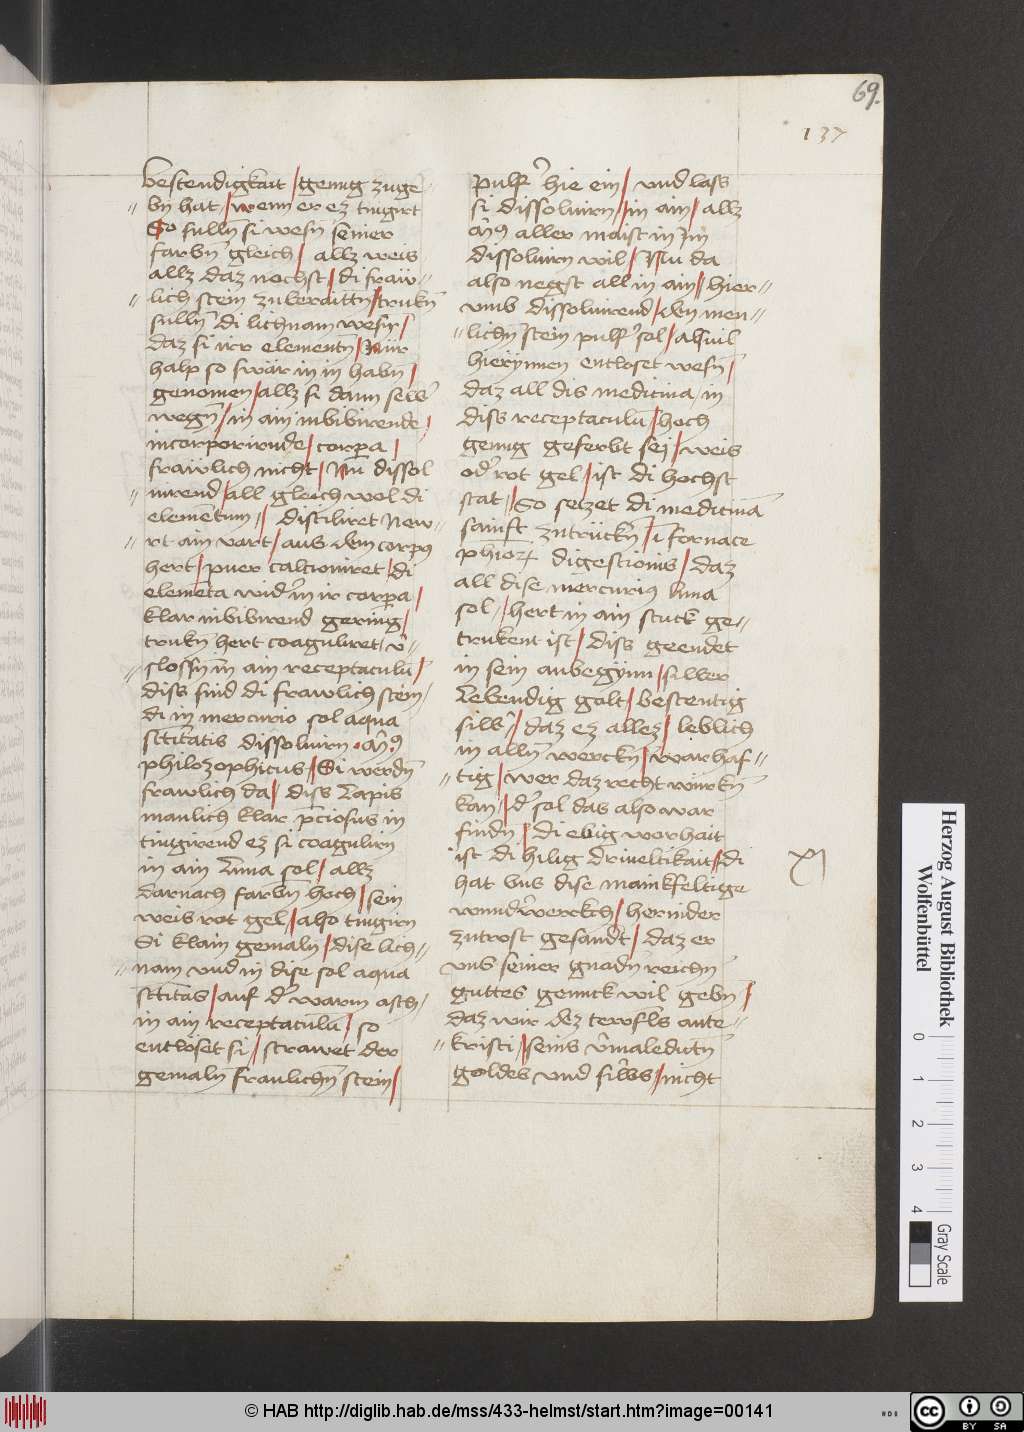 69.
137
bestendigkait / genug zuge-
bn̄ hat / wenn er ez tingirt
So sulln̄ si wesn̄ seiner
farbn̄ gleich / allz weis
allz daz nechst / di fraw-
lich stein zuberaittn̄ / trukn̄
sulln̄ di lichnam wesn̄ /
daz si iir elementn̄ / Nur
halp so swär in in habn̄ /
genomen / allz si dann selb̄
wegn̄ / in ain inbibirende /
incorporirnde / corpa /
frawlich nicht / Nu dissol
uirend / all gleich wol di
elementum / distiliret New-
rt ain vart / aus dem corpus
hert / puer calcioniret / di
elementa wider in ir corpa /
klar inbibirend gering /
trukn̄ hert coaguliret / v̄
slossn̄ in ain receptaculū /
diss sind di frawlich stein /
di in mercurio sol aqua
sctītatis dissoluirn
philozophicus / Si werdn̄
frawlich da / diss Lapis
manlich klar p̄ciosus in
tingirend ez si coagulirn
in ain Luna sol / allz
darnach farbn̄ hoch / sein
weis rot gel / also tingirn
Si klain gemaln̄ / dise lich-
nam vnd in dise sol aqua
sctītas / auf der warm asch /
in ain receptaculū / so
entlöset si / strawet der
gemaln̄ fraulichn̄ stein /
pulf̄ hie ein / vnd lass
si dissoluirn / in ain / allz
aller maist in im
dissoluirn wil / Nu da
also negst all in ain / hier-
vmb dissoluirend / den men-
lichn̄ stein pulf̄ sol / alsuil
hierÿnnen entloset wesn̄ /
daz all dis medicina / in
diss receptaculū / hoch
genug geferbt sej / weis
oder rot gel / ist di hochst
stat / So setzet di medicinā
sanft zutrückn̄ / ī fornace
digestionis / daz
all dise mercurius luna
sol / hert in ain stuck ge-
trukent ist / diss geendet
in sein anbegÿnn / silber
Lebendig golt / bestentig
silb̄ / daz ez allez / leblich
in alln̄ werckn̄ / warhaf-
tig / wer daz recht würkn̄
kan / der sol das also war
findn̄ / di ebig warhait
ist di hilig driueltikait / di
hat vns dise mainkfeltige
wunderwerckch / hernider
zutrost gesandt / daz er
vns seiner gnadn̄ reichn̄
guttes genuck wil gebn̄ /
daz wir dez tewfl̄s ante-
kristi / seins v̄maledictn̄
goldes vnd silb̄s / nicht
Herzog August Bibliothek
Wolfenbüttel
0 1 2 3 4
Gray Scale
© HAB http://diglib.hab.de/mss/433-helmst/start.htm?image=00141
HAB
CC BY SA